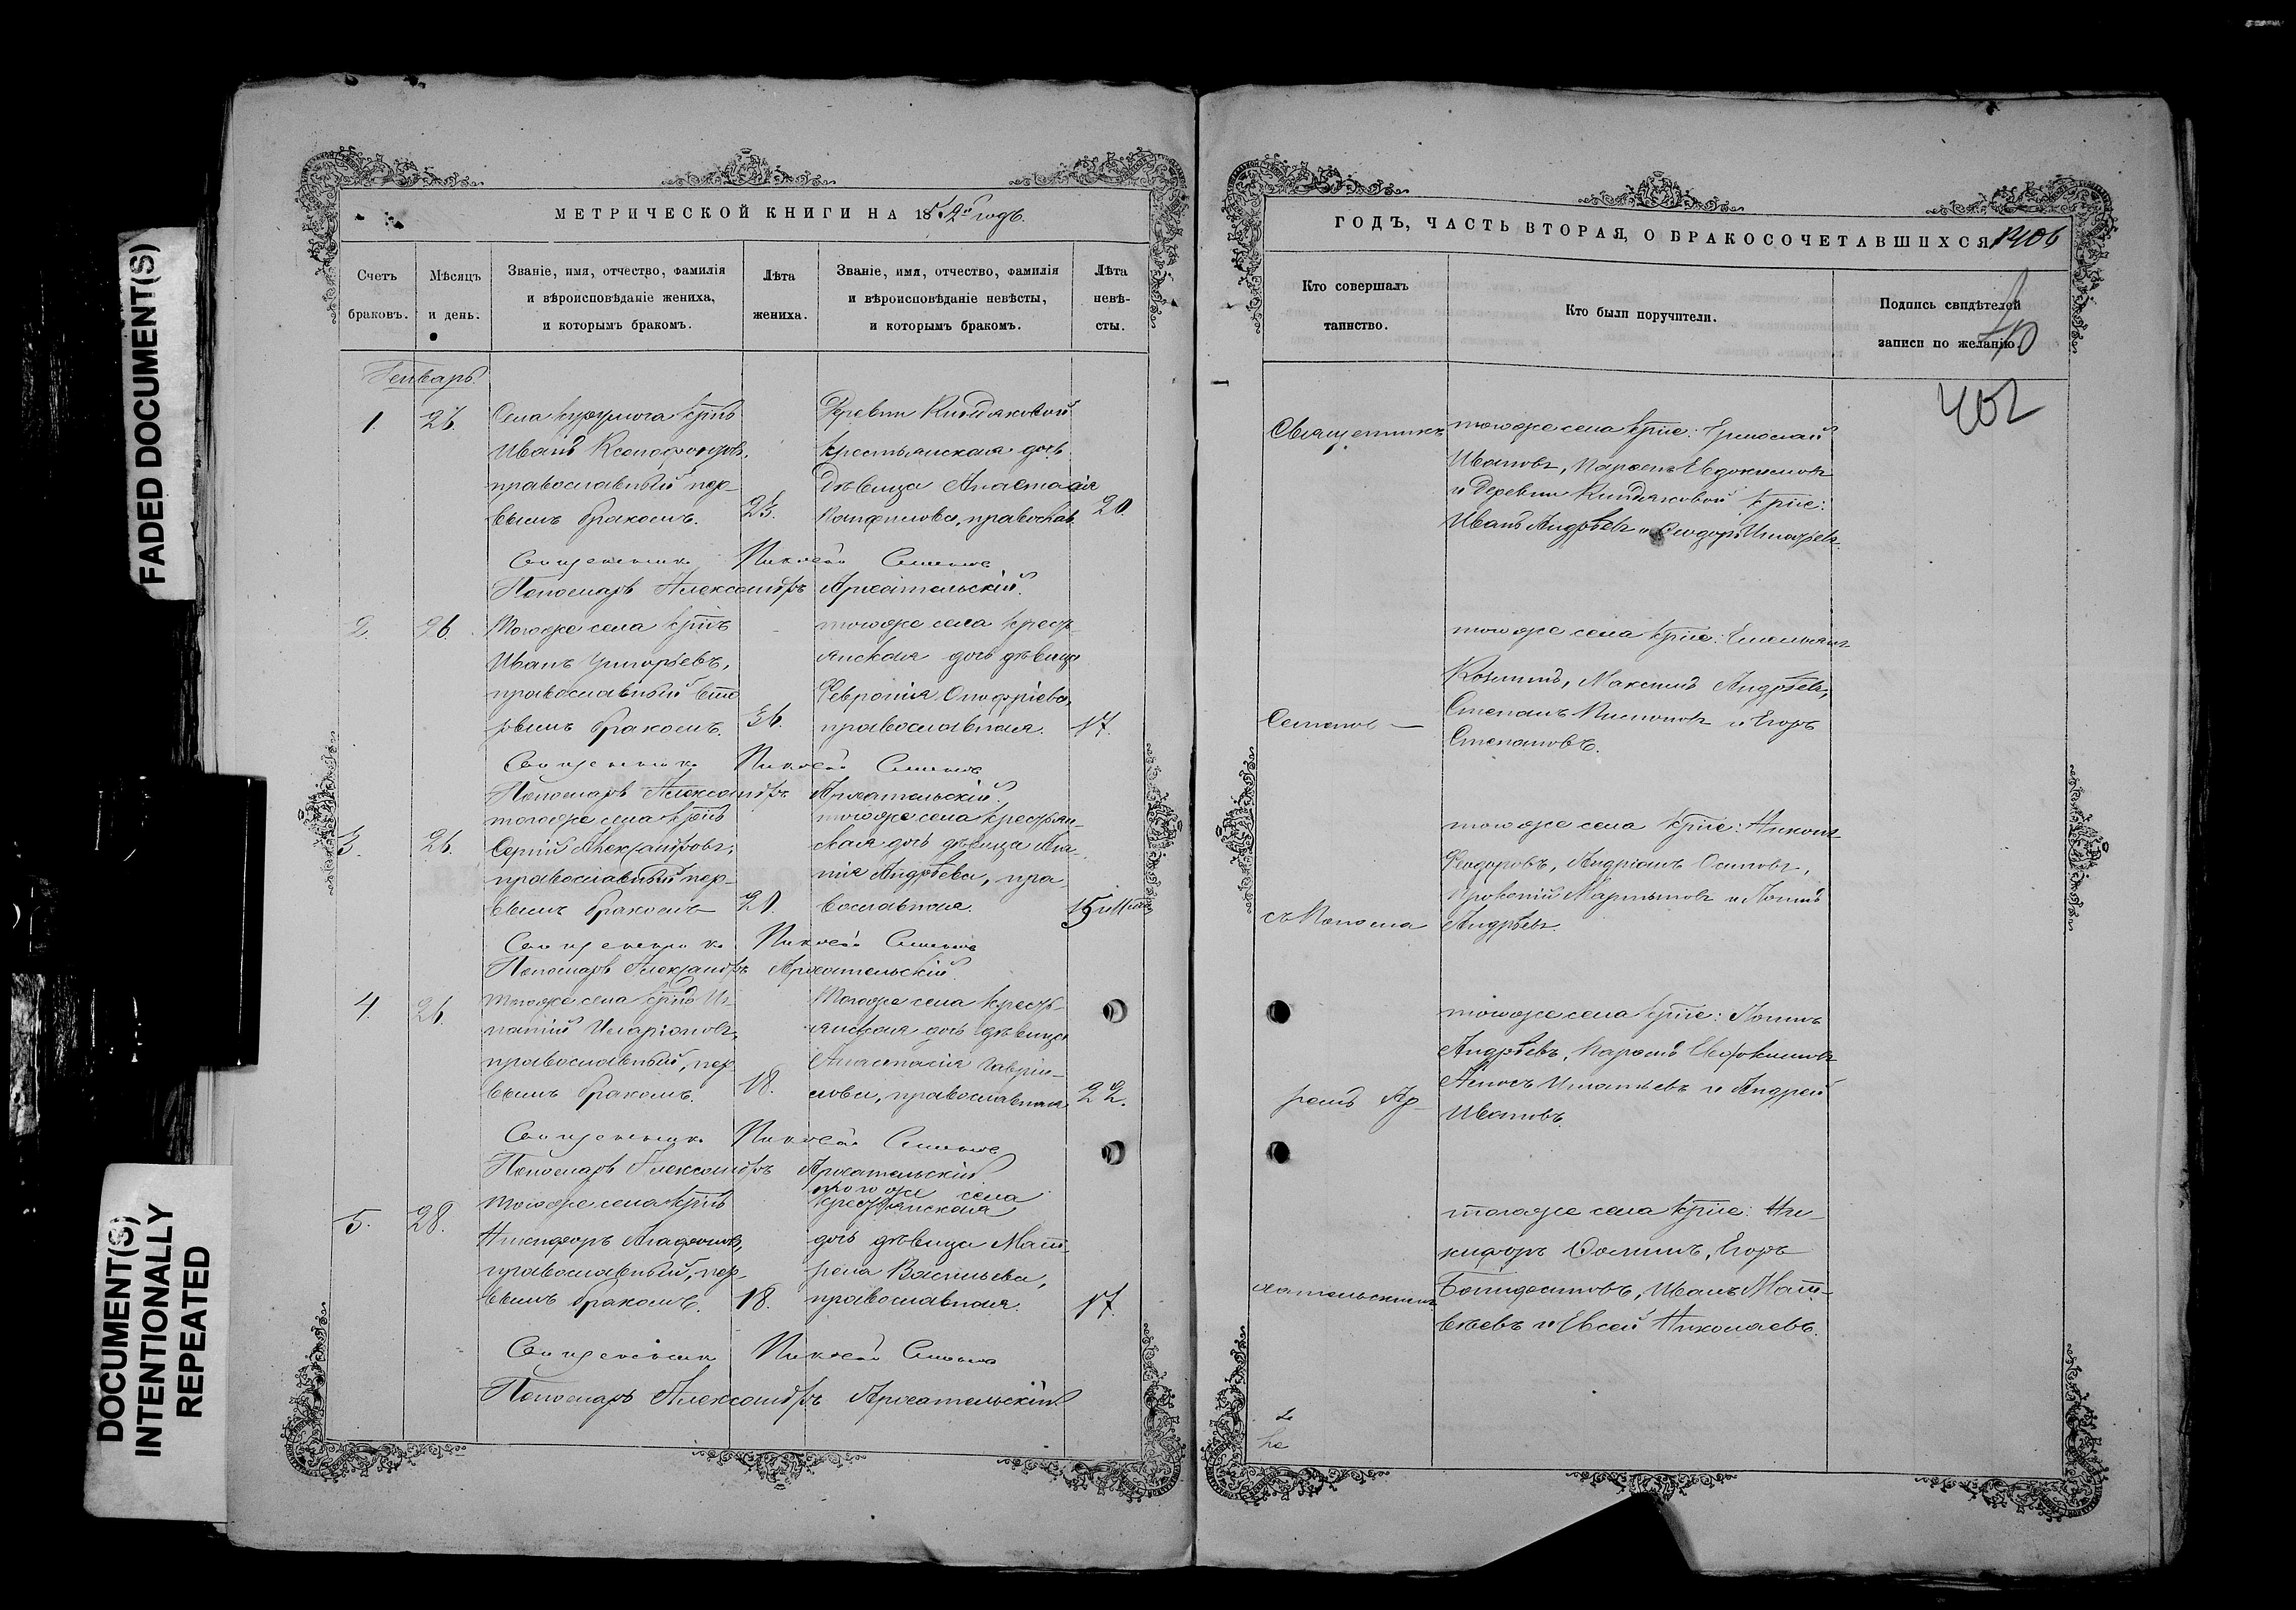 FADED DOCUMENT(S)
DOCUMENT(S)
INTENTIONALLY
REPEATED
МЕТРИЧЕСКОЙ КНИГИ НА 18 годъ.
Счетъ браковъ.
Мѣсяцъ и день.
Званіе, имя, отчество, фамилія
и вѣроисповѣданіе жениха,
и которымъ бракомъ.
Лѣта жениха.
Званіе, имя, отчество, фамилія
и вѣроисповѣданіе невѣсты,
и которымъ бракомъ.
Лѣта невѣ-
сты.
Генварь.
1. 26.
Села крт͞нъ
Иванъ Ксенофонтовъ,
православный пер-
вымъ бракомъ.
23.
Деревни Киндяковой
крестьянская дочь
дѣвица Анастасія
православ.
20.
Священникъ Николай
Пономарь Александръ Архангельскій.
2. 26.
Тогоже села крт͞нъ
Иванъ Григорьевъ,
православный вто
рымъ бракомъ.
36.
тогоже села кресть-
янская дочь дѣвица
Февронія Онофріева,
православная.
17.
Священникъ Николай
Пономарь Александръ Архангельскій.
3. 26.
тогоже села крт͞нъ
Сергій Александровъ,
православный пер-
вымъ бракомъ
20.
тогоже села крестьян-
ская дочь дѣвица
Андреева, пра
вославная.
15
Священникъ Николай
Пономарь Александръ Архангельскій.
4. 26.
Тогоже села крт͞нъ Иг
натій Иларіоновъ,
православный, пер
вымъ бракомъ.
18.
Тогоже села кресть-
янская дочь дѣвица
Анастасія Гаврии-
лова, православная
22.
Священникъ Николай
Пономарь Александръ Архангельскій
5. 28.
тогоже села крт͞нъ
Никифоръ Агафоновъ,
православный, пер-
вымъ бракомъ.
18.
тогоже села
крестьянская
дочь дѣвица Мат-
рена Васильева,
православная.
17.
Священникъ Николай
Пономарь Александръ Архангельскій
ГОДЪ, ЧАСТЬ ВТОРАЯ, О БРАКОСОЧЕТАВШИХСЯ
Кто совершалъ
таинство.
Кто были поручители.
Подпись свидѣтелей
записи по желанію.
40
402
Священникъ
тогоже села крт͞не: Ермолай
Ивановъ, Евдокимовъ
и деревни Киндяковой крт͞не:
Иванъ Андреевъ и Ѳеодоръ
Семенов
тогоже села крт͞не: Емельянъ
Козминъ, Максимъ Андреевъ,
Степанъ и Егоръ
Степановъ.
съ Понома
тогоже села крт͞не: Никонъ
Ѳеодоровъ, Андріанъ Осиповъ,
Мартыновъ и Логинъ
Андреевъ.
ремъ Ар-
тогоже села крт͞не: Логинъ
Андреевъ, Евдокимовъ
Игнатьевъ и Андрей
Ивановъ.
хангельскимъ
тогоже села крт͞не: Ни-
кифоръ Ѳоминъ, Егоръ
Иванъ Мат-
вѣевъ и Евсей Николаевъ.